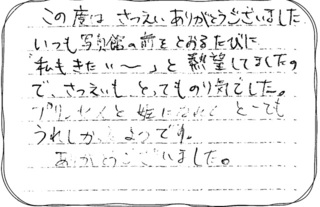 この度は さつえい ありがとうございました
いつも写真館の前をとおるたびに
「私もきたい〜」と熱望してましたの
で、さつえいも とってものり気でした。
プリンセスと 姫になれて と〜っても
うれしかったようです。
ありがとうございました。